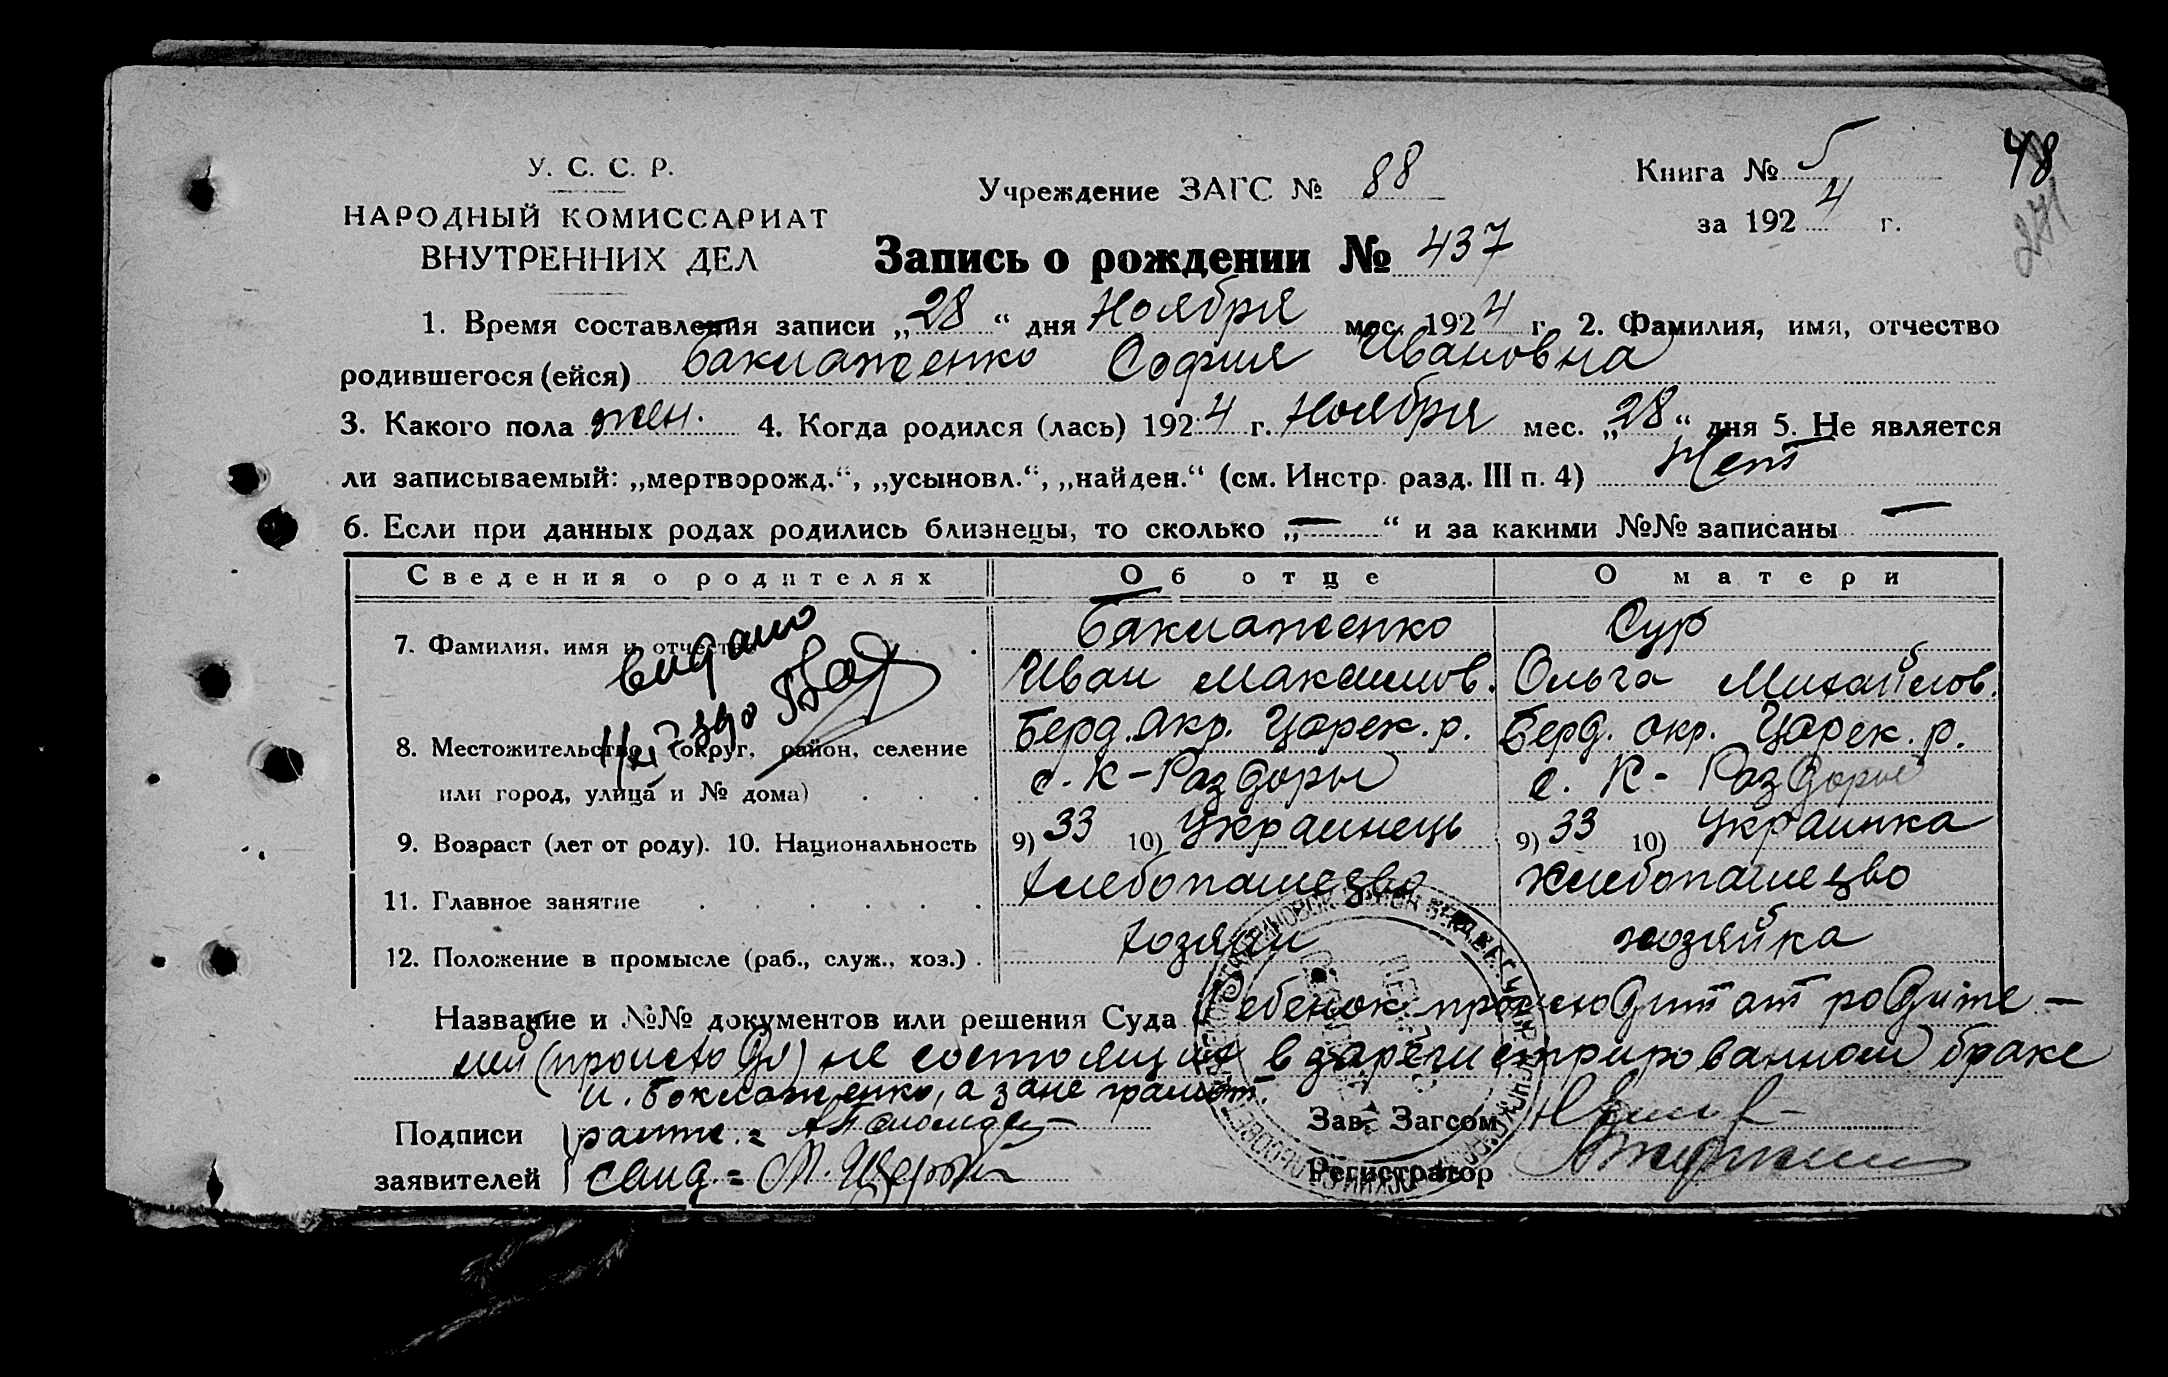 У. С. С. Р.
НАРОДНЫЙ КОМИССАРИАТ
ВНУТРЕННИХ ДЕЛ
Учреждение ЗАГС № 88
Книга № 5
за 1924 г.
48
271
Запись о рождении № 437
1. Время составления записи „28“ дня Ноября мес. 1924 г. 2. Фамилия, имя, отчество
родившегося (ейся) Баклаженко София Ивановна
3. Какого пола жен. 4. Когда родился (лась) 1924 г. Ноября мес. „28“ дня 5. Не является
ли записываемый: „мертворожд.“, „усыновл.“, „найден.“ (см. Инстр. разд. III п. 4) Нет
6. Если при данных родах родились близнецы, то сколько „—“ и за какими №№ записаны —
Сведения о родителях Об отце О матери
7. Фамилия, имя и отчество Баклаженко Сур
Иван Максимов. Ольга Михайлов.
видано
8. Местожительство (округ, район, селение Берд. окр. Царек. р. Берд. окр. Царек. р.
или город, улица и № дома) с. К-Раздоры с. К-Раздоры
9. Возраст (лет от роду). 10. Национальность 9) 33 10) Украинець 9) 33 10) Украинка
11. Главное занятие хлебопашецво хлебопашецво
12. Положение в промысле (раб., служ., хоз.) хозяин хозяйка
Название и №№ документов или решения Суда Ребенок происходит от родите-
лей (происходя) не состоящих в зарегистрированном браке
И. Баклаженко, а за не грамот.
Подписи
заявителей
Зав. Загсом
Регистратор